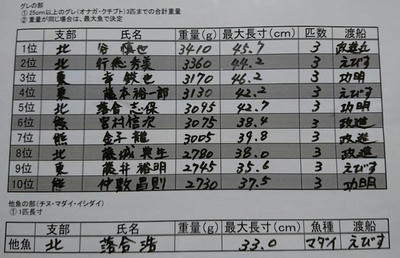 グレの部
① 25cm以上のグレ(オナガ・クチブト)3匹までの合計重量
② 重量が同じ場合は、最大魚で決定
支部 氏名 重量(g) 最大長寸(cm) 匹数 渡船
1位 北 慎也 3410 45.7 3 政進丸
2位 北 行徳秀美 3360 44.2 3 えびす
3位 東 鉄也 3170 46.2 3 功明
4位 東 藤本裕一郎 3130 42.2 3 えびす
5位 北 落合志保 3095 42.7 3 功明
6位 熊 宮村信次 3075 38.4 3 政進
7位 熊 金子龍 3005 39.8 3 政進
8位 北 藤城典生 2780 38.0 3 政進
9位 東 藤井裕明 2745 35.6 3 えびす
10位 熊 仲敷昌則 2730 37.5 3 功明
他魚の部(チヌ・マダイ・イシダイ)
① 1匹長寸
支部 氏名 重量(g) 最大長寸(cm) 魚種 渡船
他魚 北 落合浩 33.0 マダイ えびす